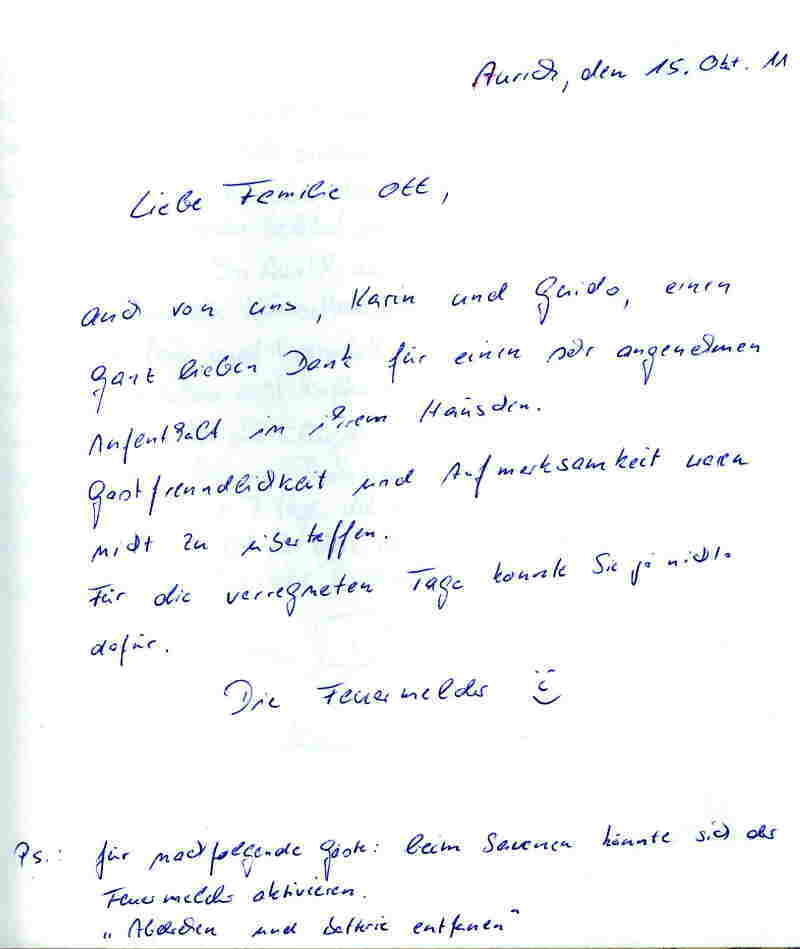 Aurich, den 15. Okt. 11
Liebe Familie Ott,
auch von uns, Karin und Guido, einen
ganz lieben Dank für einen sehr angenehmen
Aufenthalt in ihrem Häuschen.
Gastfreundlichkeit und Aufmerksamkeit waren
nicht zu übertreffen.
Für die verregneten Tage konnte Sie ja nichts
dafür.
Die Feuermelder
Ps.: für nachfolgende Gäste: beim Saunen könnte sich der
Feuermelder aktivieren.
„Abdrehen und Batterie entfernen"